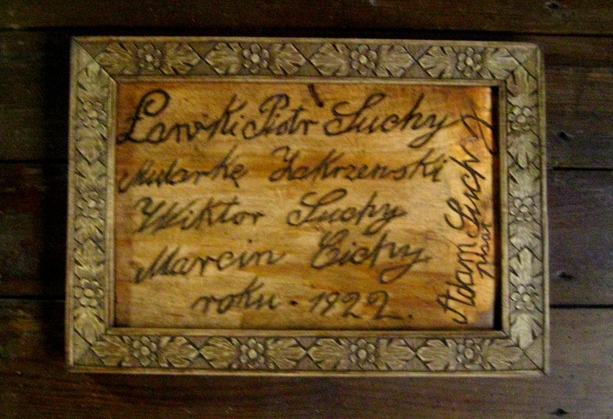 Ławki Piotr Suchy
Mularkę Zakrzenski
Wiktor Suchy
Marcin Cichy
roku. 1922.
Adam Suchy
Pisał